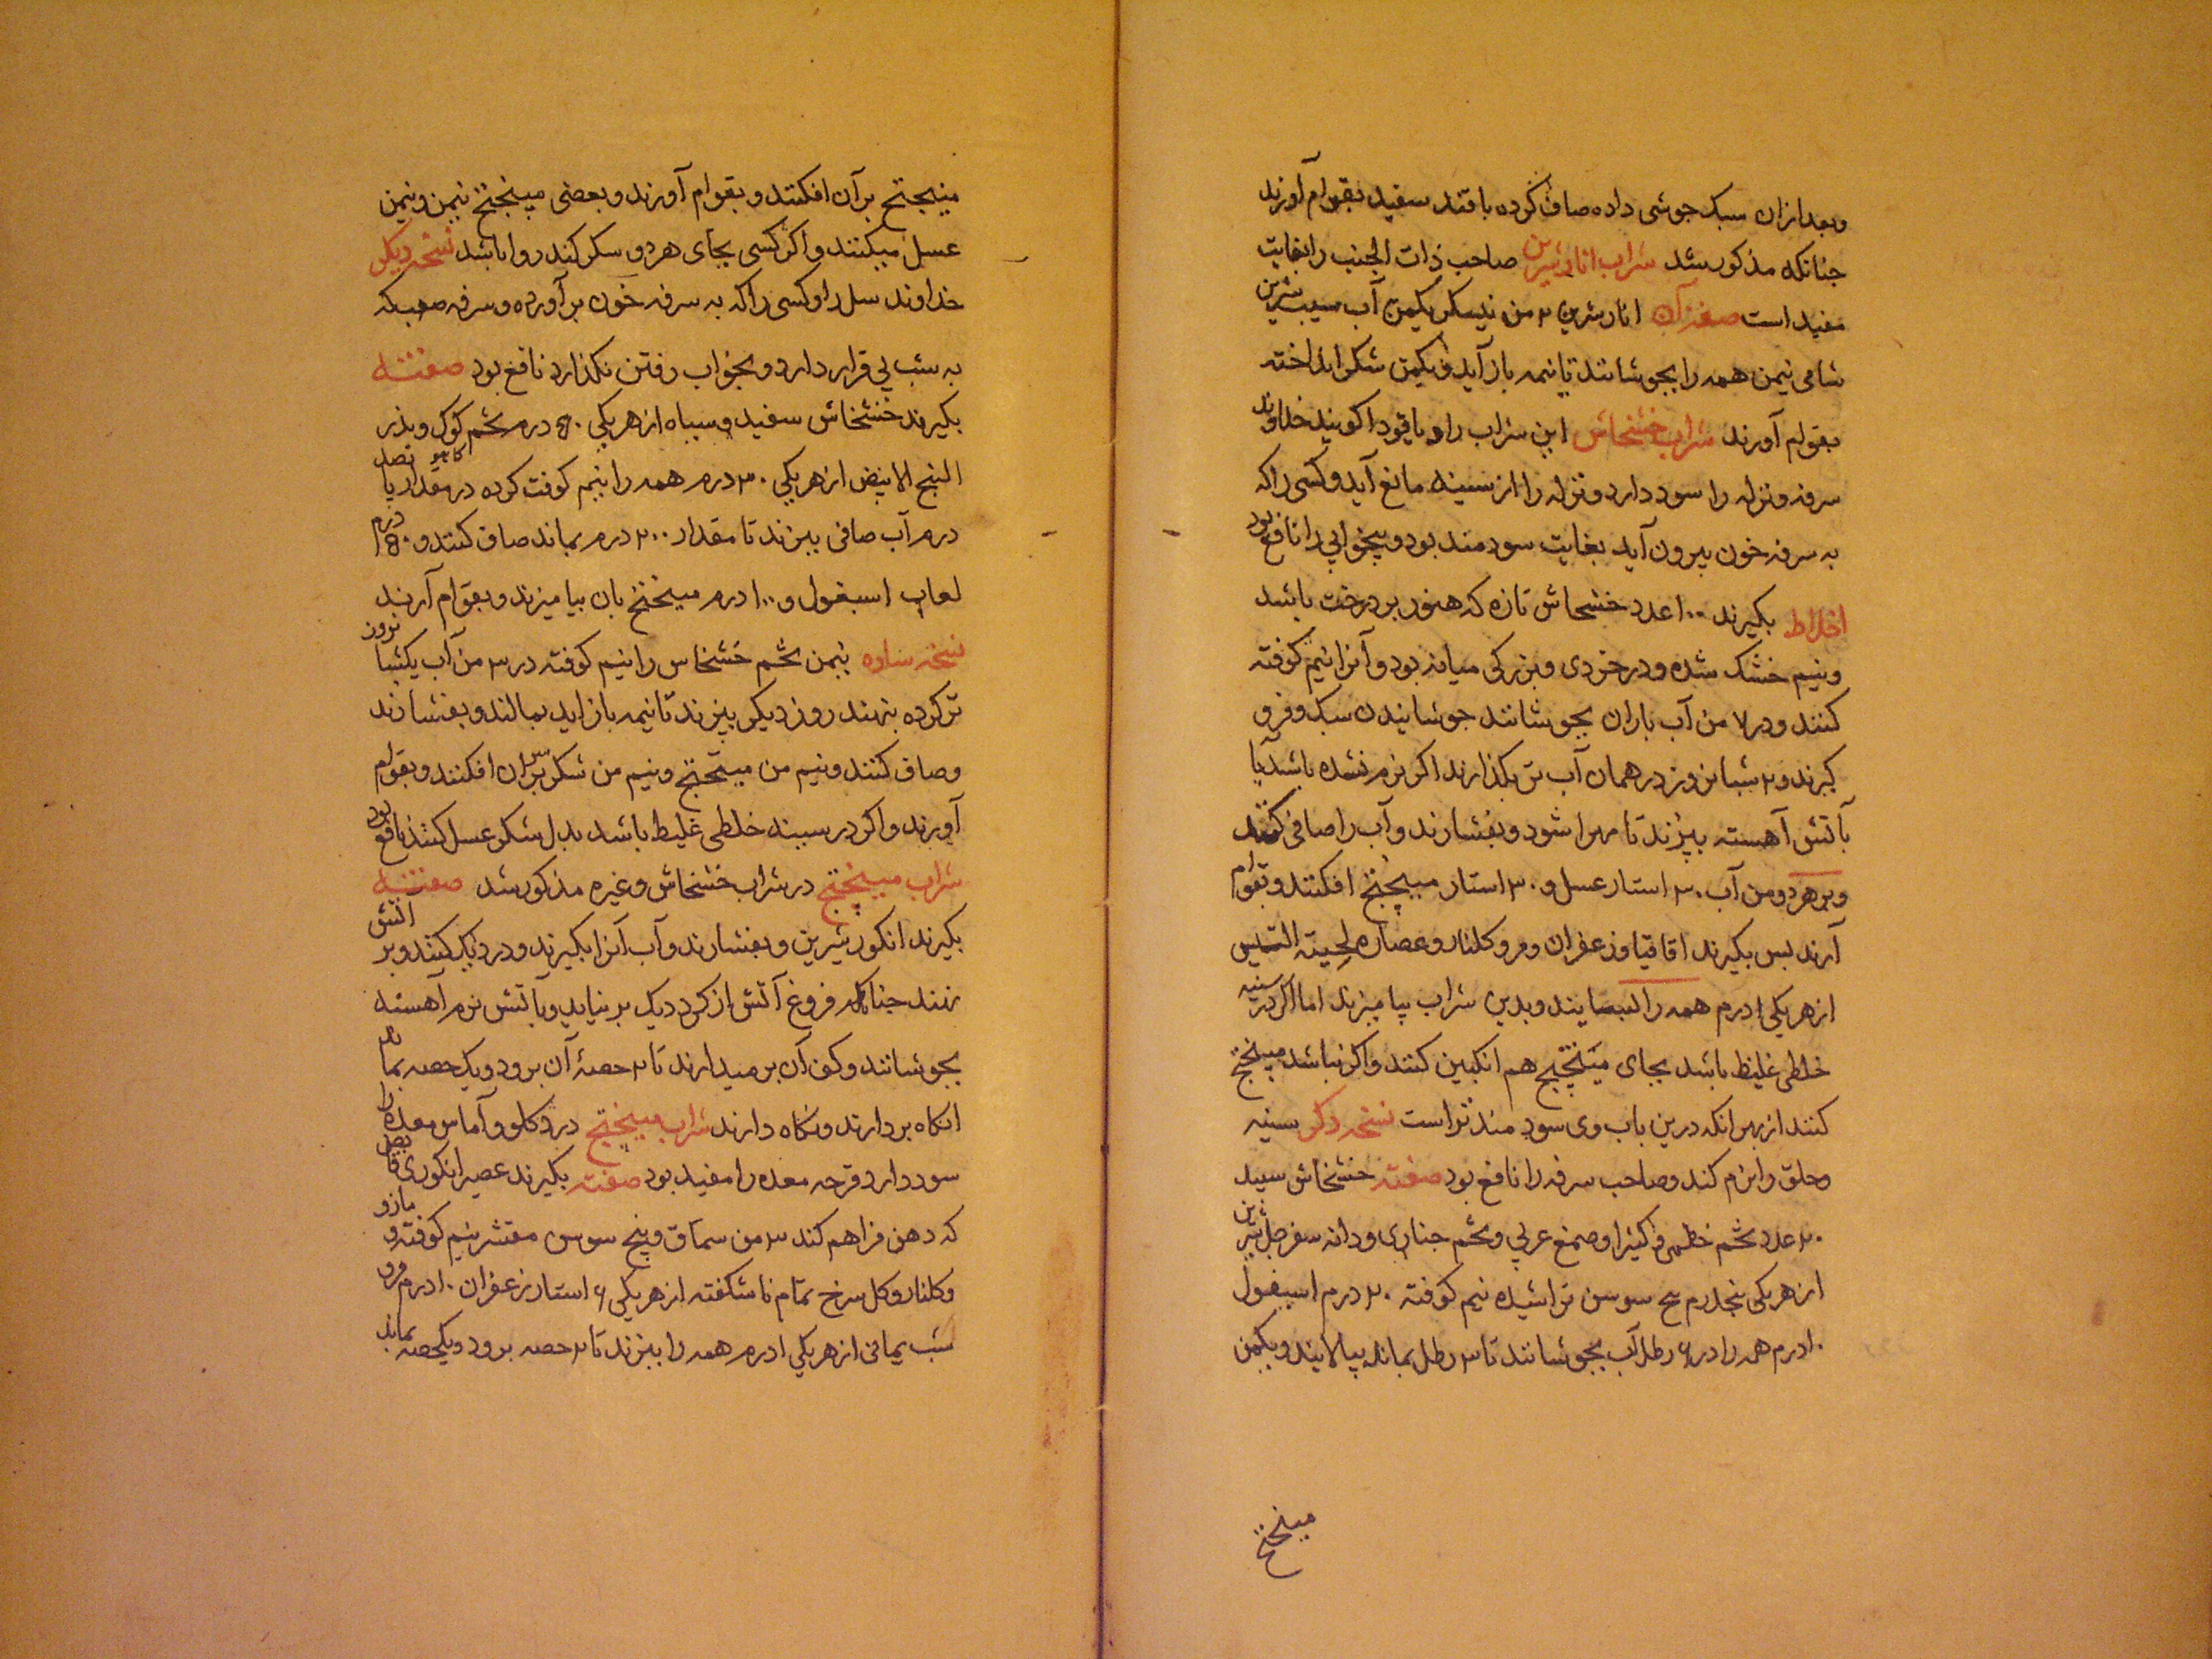 وبعد ازان سبک جوشی داده صاف کرده باقند سفید بقوام آورند
جنانکه مذکور شد شراب انار شیرین صاحب ذات الجنب را بغایت
مفید است صفة آن انار شیرین ۲ من نیسکر یکمن آب سیب شیرین
شامی نیمن همه را بجوشانند تا نیمه باز آید و یکمن شکر انداخته
بقوام آورند شراب خشخاش این شراب را دیاقودا کویند خداوند
سرفه ونزله را سود دارد ونزله را از سینه مانع آید وکسی را که
به سرفه خون بیرون آید بغایت سودمند بود وبیخوابی را نافع بود
اخلاط بکیرند ۱۰۰ عدد خشخاش تازه که هنوز بر درخت باشد
ونیم خشک شده ودر خردی وبزرکی میانه بود وآنرا نیم کوفته
کنند ودر ۷ من آب باران بجوشانند جوشانیدن سبک وفرو
کیرند و ۲ شبانروز در همان آب تر بکذارند اکر نرم نشده باشد با
بآتش آهسته بپزند تا مهرا شود وبفشارند وآب را صافی کنند
وبر هر دو من آب ۳۰ استار عسل و ۳۰ استار میبختج افکنند وبقوام
آرند بس بکیرند اقاقیا وزعفران ومر وکلنار وعصاره لحیة التیس
از هریکی ۱ درم همه را بسایند وبدین شراب بیامیزند اما اکر در سینه
خلطی غلیظ باشد بجای میبختج هم انکبین کنند واکر نباشد میبختج
کنند از بهر انکه درین باب وی سودمندتر است نسخه دکر سینه
وحلق را نرم کند وصاحب سرفه را نافع بود صفته خشخاش سپید
۲۰ عدد تخم خطمی و کثیرا وصمغ عربی وتخم خبازی ودانه سفرجل شیرین
از هریکی پنجدرم بیخ سوسن تراشیده نیم کوفته ۲۰ درم اسپغول
۱۰ درم همه را در ۶ رطل آب بجوشانند تا ۳ رطل بماند بپالایند ویکمن
میبختج
میبختج بر آن افکنند وبقوام آورند وبعضی میبختج نیمن ونیمن
عسل میکنند واکر کسی بجای هردو سکر کند روا باشد نسخه دیکر
خداوند سل را وکسی را که به سرفه خون بر آورده وسرفه صعب که
به شب بی قرار دارد وبخواب رفتن نکذارد نافع بود صفته
بکیرند خشخاش سفید وسیاه از هریکی ۵۰ درم تخم کوک وبذر کاهو
البنج الابیض از هریکی ۳۰ درم همه را نیم کوفت کرده در مقدار پانصد
درم آب صافی بپزند تا مقدار ۲۰۰ درم بماند صاف کنند و ۵۰ درم
لعاب اسبغول و ۱۰۰ درم میبختج بان بیامیزند وبقوام آرند
نسخه ساده نیمن تخم خشخاس را نیم کوفته در ۳ من آب یکشبانروز
تر کرده بنهند روز دیکر بپزند تا نیمه باز اید بمالند وبفشارند
وصاف کنند ونیم من میبختج ونیم من شکر بر سر ان افکنند وبقوام
آورند واکر در سینه خلطی غلیظ باشد بدل شکر عسل کنند نافع بود
شراب میبختج در شراب خشخاش وغیره مذکور شد صفته
بکیرند انکور شیرین وبفشارند وآب آنرا بکیرند ودر دیک کنند وبر اتش
نهند جنانکه فروغ آتش از کرد دیک بر نیاید وبآتش نرم آهسته
بجوشانند وکف آن بر میدارند تا ۲ حصۀ آن برود ویک حصه بماند
انکاه بردارند ونکاه دارند شراب میبختج درد کلو وآماس معده را
سود دارد قرحه معده را مفید بود صفته بکیرند عصیر انکوری قابض
که دهن فراهم کند ۳ من سماق وبیخ سوس مقشر نیم کوفته ومازو
وکلنار وکل سرخ تمام ناشکفته از هریکی ۶ استار زعفران ۱۰ درم مرو
شب یمانی از هریکی ۱ درم همه را بپزند تا ۲ حصه برود ویکحصه بماند